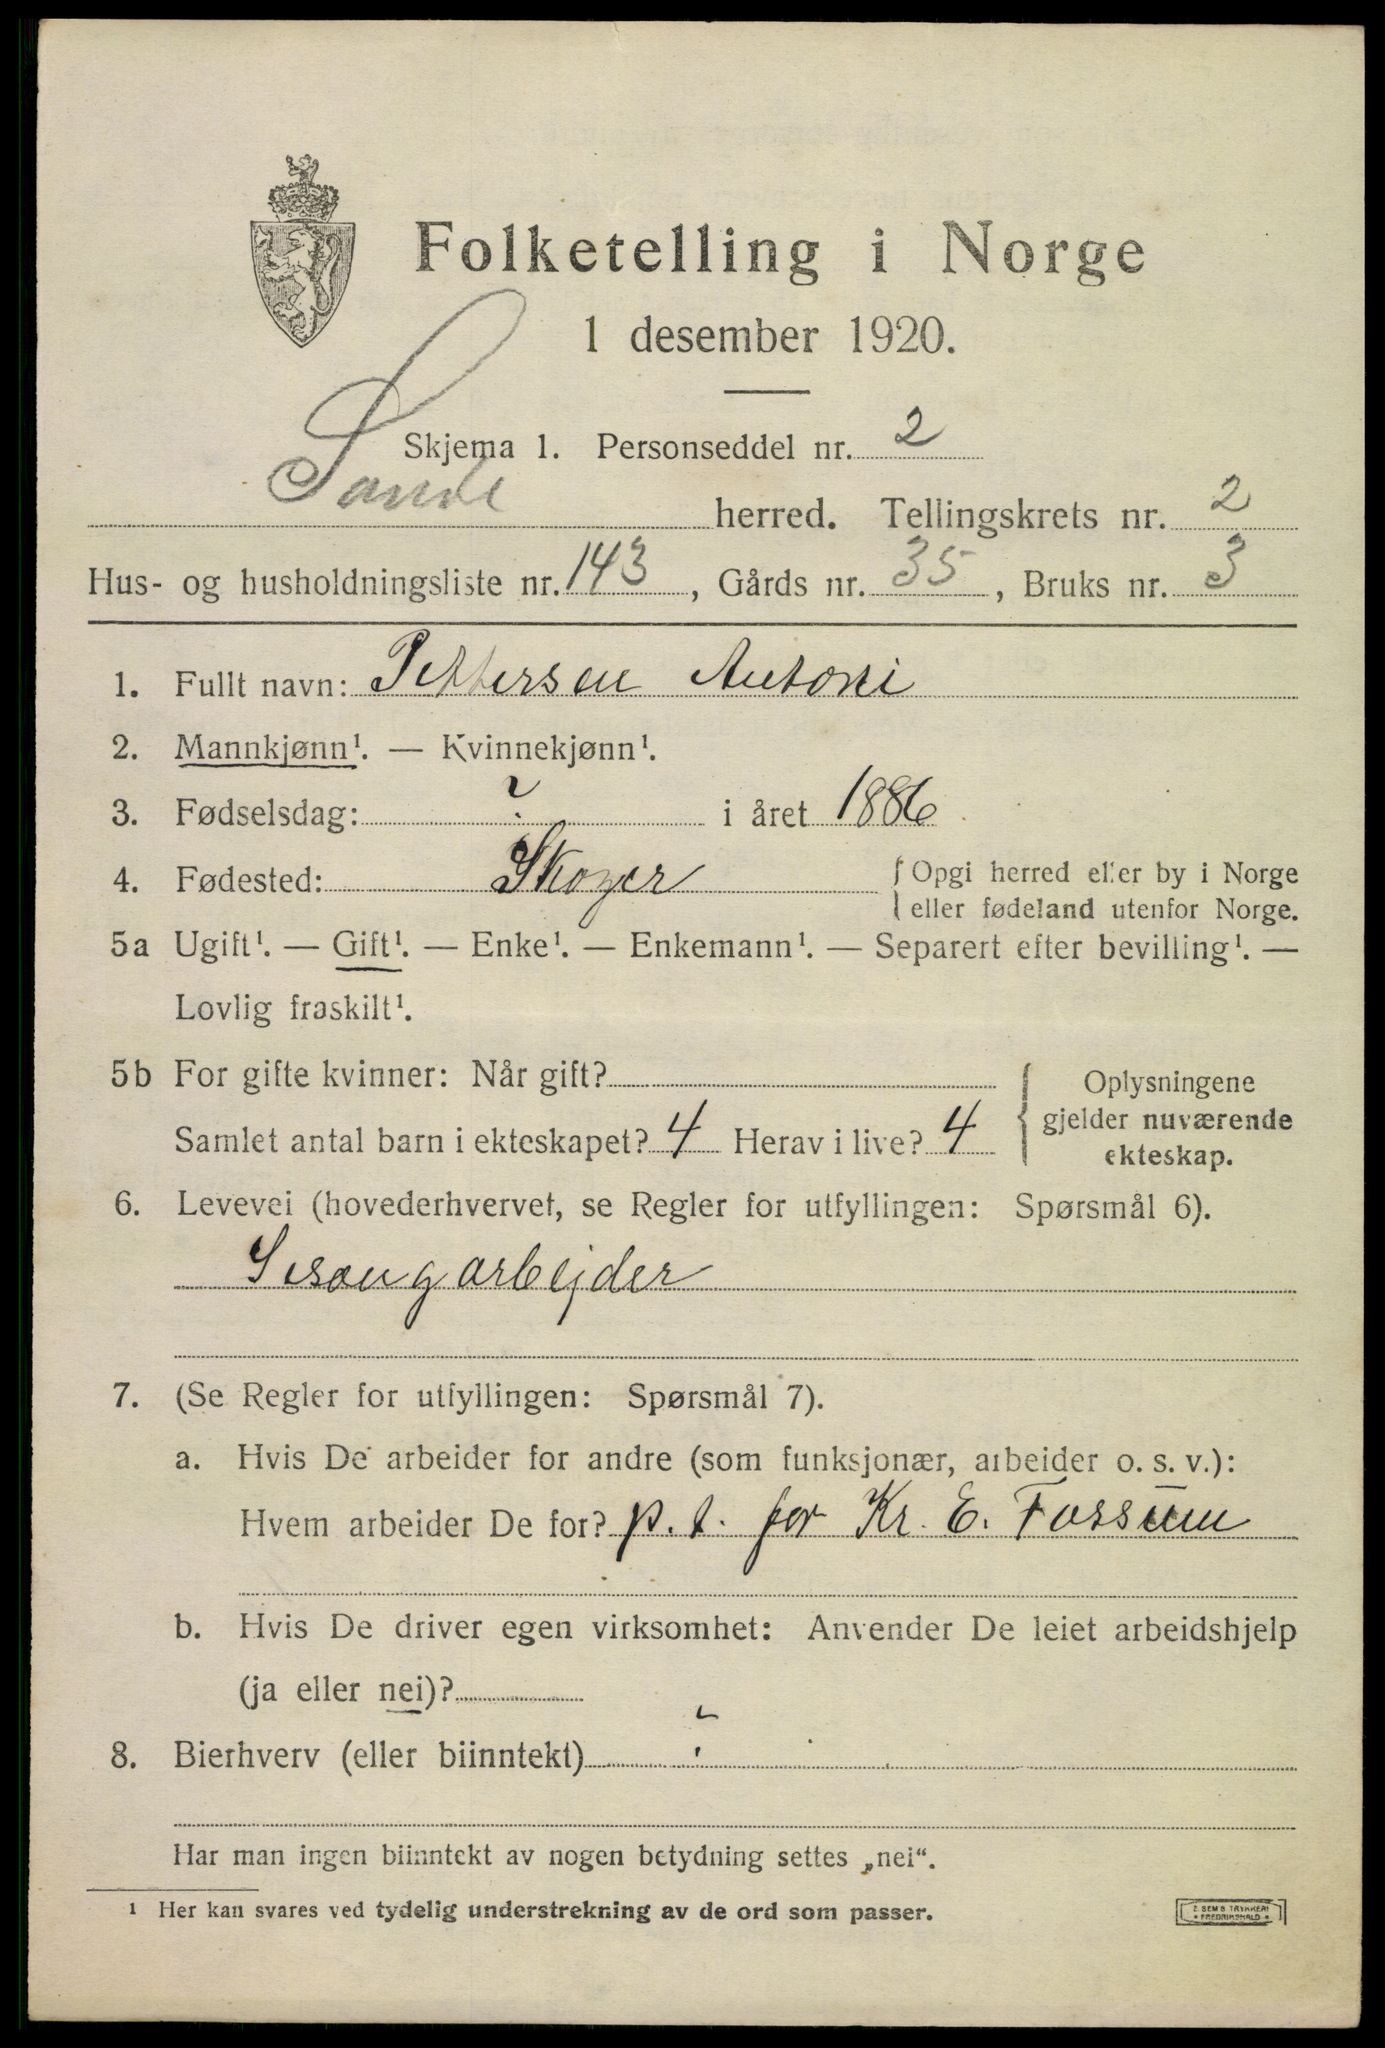 Folketelling i Norge
1 desember 1920.
Skjema 1. Personseddel nr. 2
Sande herred. Tellingskrets nr. 2
Hus- og husholdningsliste nr. 143, Gårds nr. 35, Bruks nr. 3
1. Fullt navn: Pettersen Antoni
2. Mannkjønn¹. — Kvinnekjønn¹.
3. Fødselsdag: ? i året 1886
4. Fødested: Skoger { Opgi herred eller by i Norge
eller fødeland utenfor Norge.
5a Ugift¹. — Gift¹. — Enke¹. — Enkemann¹. — Separert efter bevilling¹. —
Lovlig fraskilt¹.
5b For gifte kvinner: Når gift? { Oplysningene
gjelder nuværende
ekteskap.
Samlet antal barn i ekteskapet? 4 Herav i live? 4
6. Levevei (hovederhvervet, se Regler for utfyllingen: Spørsmål 6).
Sesongarbejder
7. (Se Regler for utfyllingen: Spørsmål 7).
a. Hvis De arbeider for andre (som funksjonær, arbeider o. s. v.):
Hvem arbeider De for? p. t. for Kr. E. Fossum
b. Hvis De driver egen virksomhet: Anvender De leiet arbeidshjelp
(ja eller nei)?
8. Bierhverv (eller biinntekt)
Har man ingen biinntekt av nogen betydning settes „nei“.
¹ Her kan svares ved tydelig understrekning av de ord som passer.
E. SEM'S TRYKKERI
* FREDRIKSHALD *